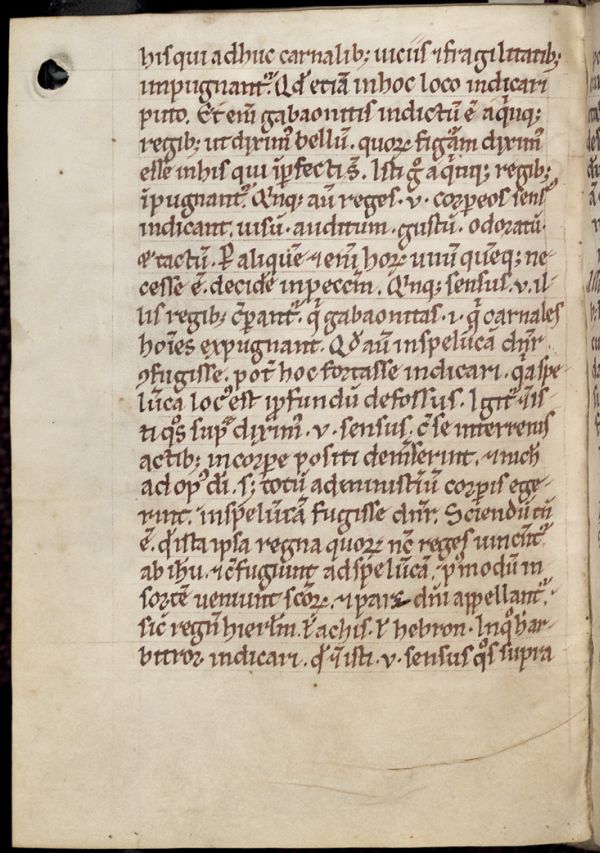 his qui adhuc carnalib; uiciis ⁊ fragilitatib;
inpugnant᷑. Qđ etiā in hoc loco indicari
puto. Et eni᷑ gabaonitis indictū ē a q̇nq;
regib; ut dixim᷒ bellū. quoꝝ figa᷑m dixim᷒
esse in his qui īpfecti s̄. Isti gͦ a q̇nq; regib;
īpugnant᷑. Q̇nq; aū reges .v. corpeos sens᷒
indicant. uisū. auditum. gustū. odoratū.
& tactū. P aliquē ⁊enī hoꝝ unū quēq; ne-
cesse ē. decide in peccm̄. Q̇nq; sensus .v. il-
lis regib; c̄parant᷑. q̇ gabaonitas .i. q̇ carnales
hoi̅es expugnant. Qđ aū in spelūcā dn̄r
ꝯfugisse. pot̄ hoc fortasse indicari. qͣ spe-
lūca locꝰ est ī pfundū defossus. Igit᷑
ti qͦs supͣ dixim᷒ .v. sensus. c̄ se in terrenis
actib; in corpe positi demserint. ⁊ nich̄
ad opꝰ dī. s; totū ad ministiū corpis ege-
rint. in spelūcā fugisse dn̄r. Sciendū tn̄
ē. qđ ista ipsa regna quoꝝ nc̄ reges uincūt᷑
ab ihu. ⁊ c̄fugiunt ad spelūcā. pͦmodū in
sortē ueniunt scōꝝ. ⁊ pars dn̄i appellant᷑.
sic̄ regnū hierl̄m. ł achis. ł hebron. In qͦ h̄ ar-
bitror indicari. qđ isti .v. sensus qͦs supra